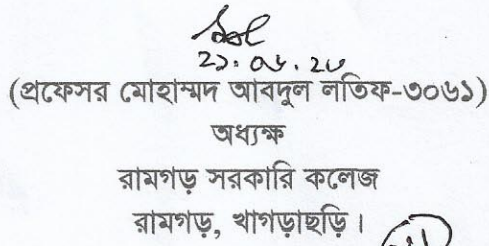 (প্রফেসর মোহাম্মদ আবদুল লতিফ-৩০৬১)
অধ্যক্ষ
রামগড় সরকারি কলেজ
রামগড়, খাগড়াছড়ি।